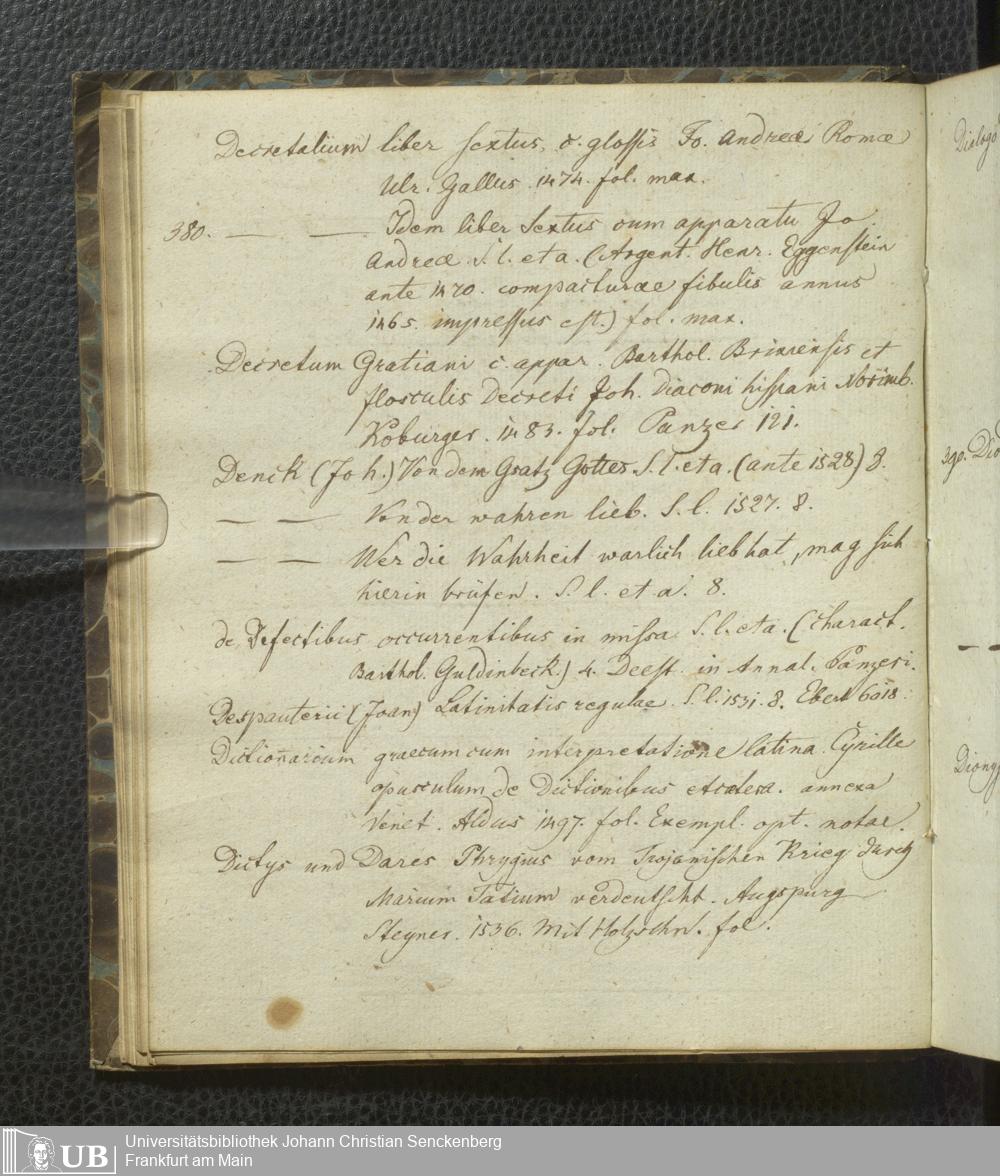 Decretalium liber sextus, c. glossis Jo. Andreæ Romæ
Ulr. Gallus. 1474. fol. max.
380. — — Idem liber Sextus cum apparatu Jo
Andreæ. S. l. et a. (Argent. Henr. Eggenstein
ante 1470. compacturae fibulis annus
1465. impressus est.) fol. max.
Decretum Gratiani c. appar. Barthol. Brixiensis et
flosculis Decreti Joh. Diaconi hispani Norimb.
Koburger. 1483. fol. Panzer 121.
Denck (Joh.) Von dem Gsatz Gottes S. l. et a. (ante 1528) 8.
— — Von der wahren lieb. S. l. 1527. 8.
— — Wer die Wahrheit warlich lieb hat, mag sich
hierin brüfen. S. l. et a. 8.
de Defectibus occurrentibus in missa S. l. et a. (charact.
Barthol. Guldinbeck.) 4. Deest in Annal. Panzeri.
Despauterii (Joan) Latinitatis regulae. S. l. 1531. 8. Ebert 6018.
Dictionarium graecum cum interpretatione latina. Cyrille
opusculum de Dictionibus etcetera. annexa
Venet. Aldus 1497. fol. Exempl. opt. notae.
Dictys und Dares Phrygius vom Trojanischen Krieg durch
Marcum Tatium verdeutscht. Augspurg
Steyner. 1536. Mit Holzschn. fol.
Dialogo
390. Dio
Diony
UB
Universitätsbibliothek Johann Christian Senckenberg
Frankfurt am Main